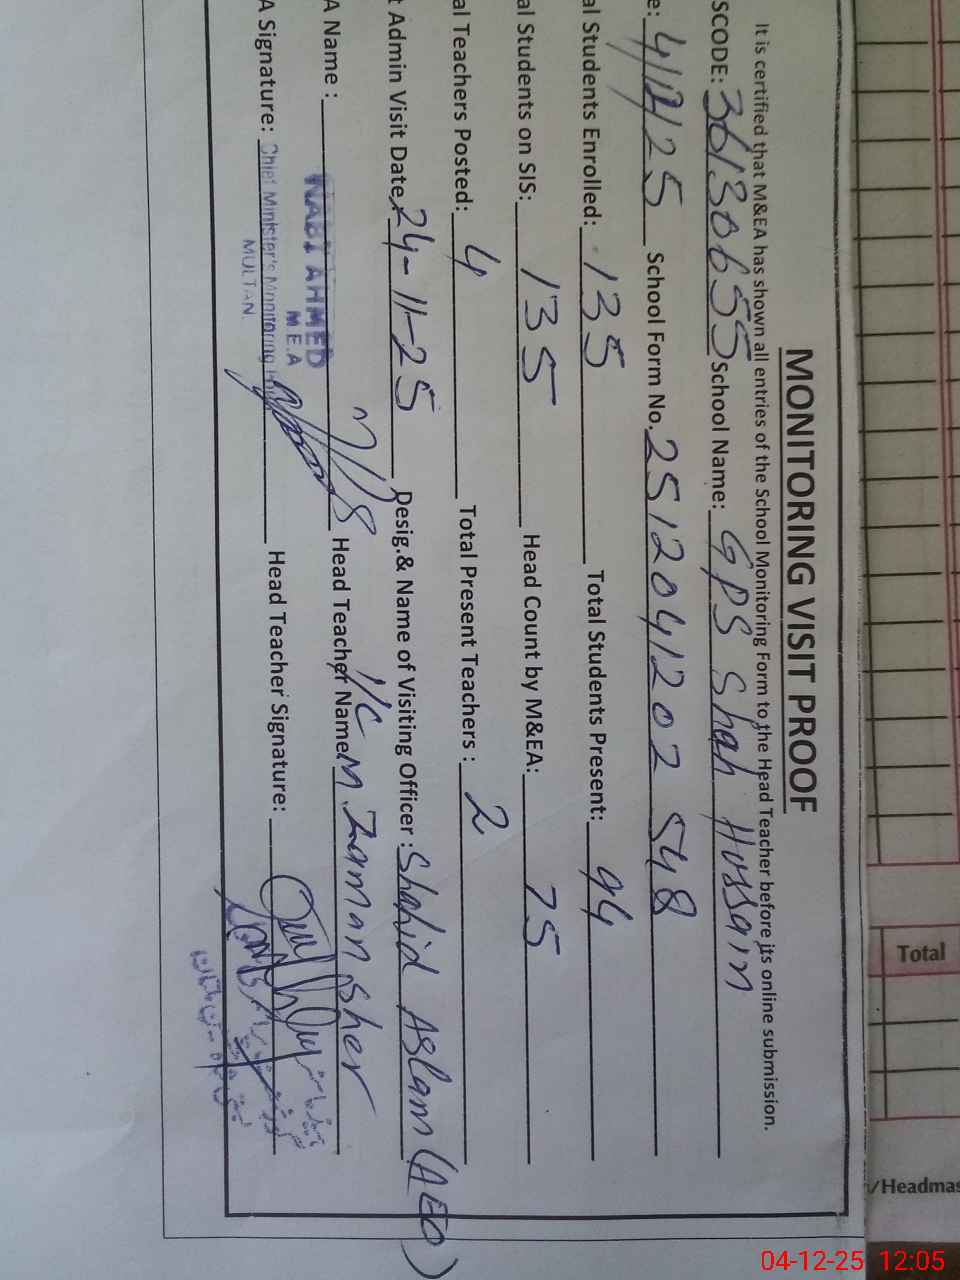 MONITORING VISIT PROOF
It is certified that M&EA has shown all entries of the School Monitoring Form to the Head Teacher before its online submission.
SCODE: 36130655 School Name: GPS Shah Hussain
e: 4/12/25 School Form No. 251204120 2 548
al Students Enrolled: 135 Total Students Present: 94
al Students on SIS: 135 Head Count by M&EA: 75
al Teachers Posted: 4 Total Present Teachers : 2
t Admin Visit Date, 24-11-25 Desig.& Name of Visiting Officer : Shahid Aslam (AEO)
A Name : NABI AHMED Head Teacher Name I/C M Zaman Sher
M E.A
A Signature: Chief Minister's Monitoring Head Teacher Signature:
MULTAN
Total
/Headmas
04-12-25 12:05